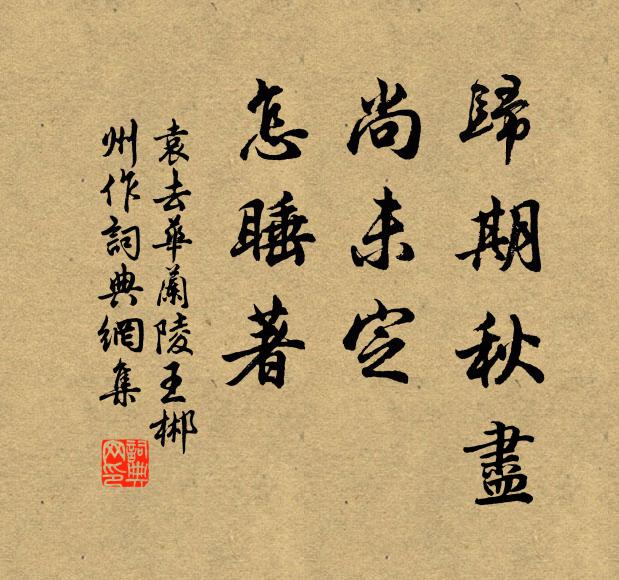 歸期秋盡
尚未定
怎睡著
袁去華蘭陵王郴
州作詞典網集
詞典
网印